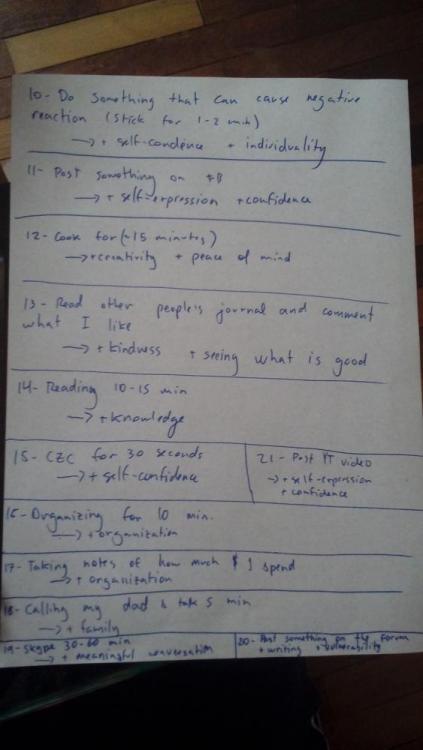 10- Do something that can cause negative
reaction (stick for 1-2 min)
→ + self-condence + individuality
11- Post something on FB
→ + self-expression + confidence
12- Cook for (~15 minutes)
→ + creativity + peace of mind
13- Read other people's journal and comment
what I like
→ + kindness + seeing what is good
14- Reading 10-15 min
→ + knowledge
15- CZC for 30 seconds
→ + self-confidence
21- Post YT video
→ + self-expression
+ confidence
16- Organizing for 10 min.
→ + organization
17- Taking notes of how much $ I spend
→ + organization
18- Calling my dad & talk 5 min
→ + family
19- Skype 30-60 min
→ + meaningful conversation
20- Post something on the forum
+ writing + vulnerability